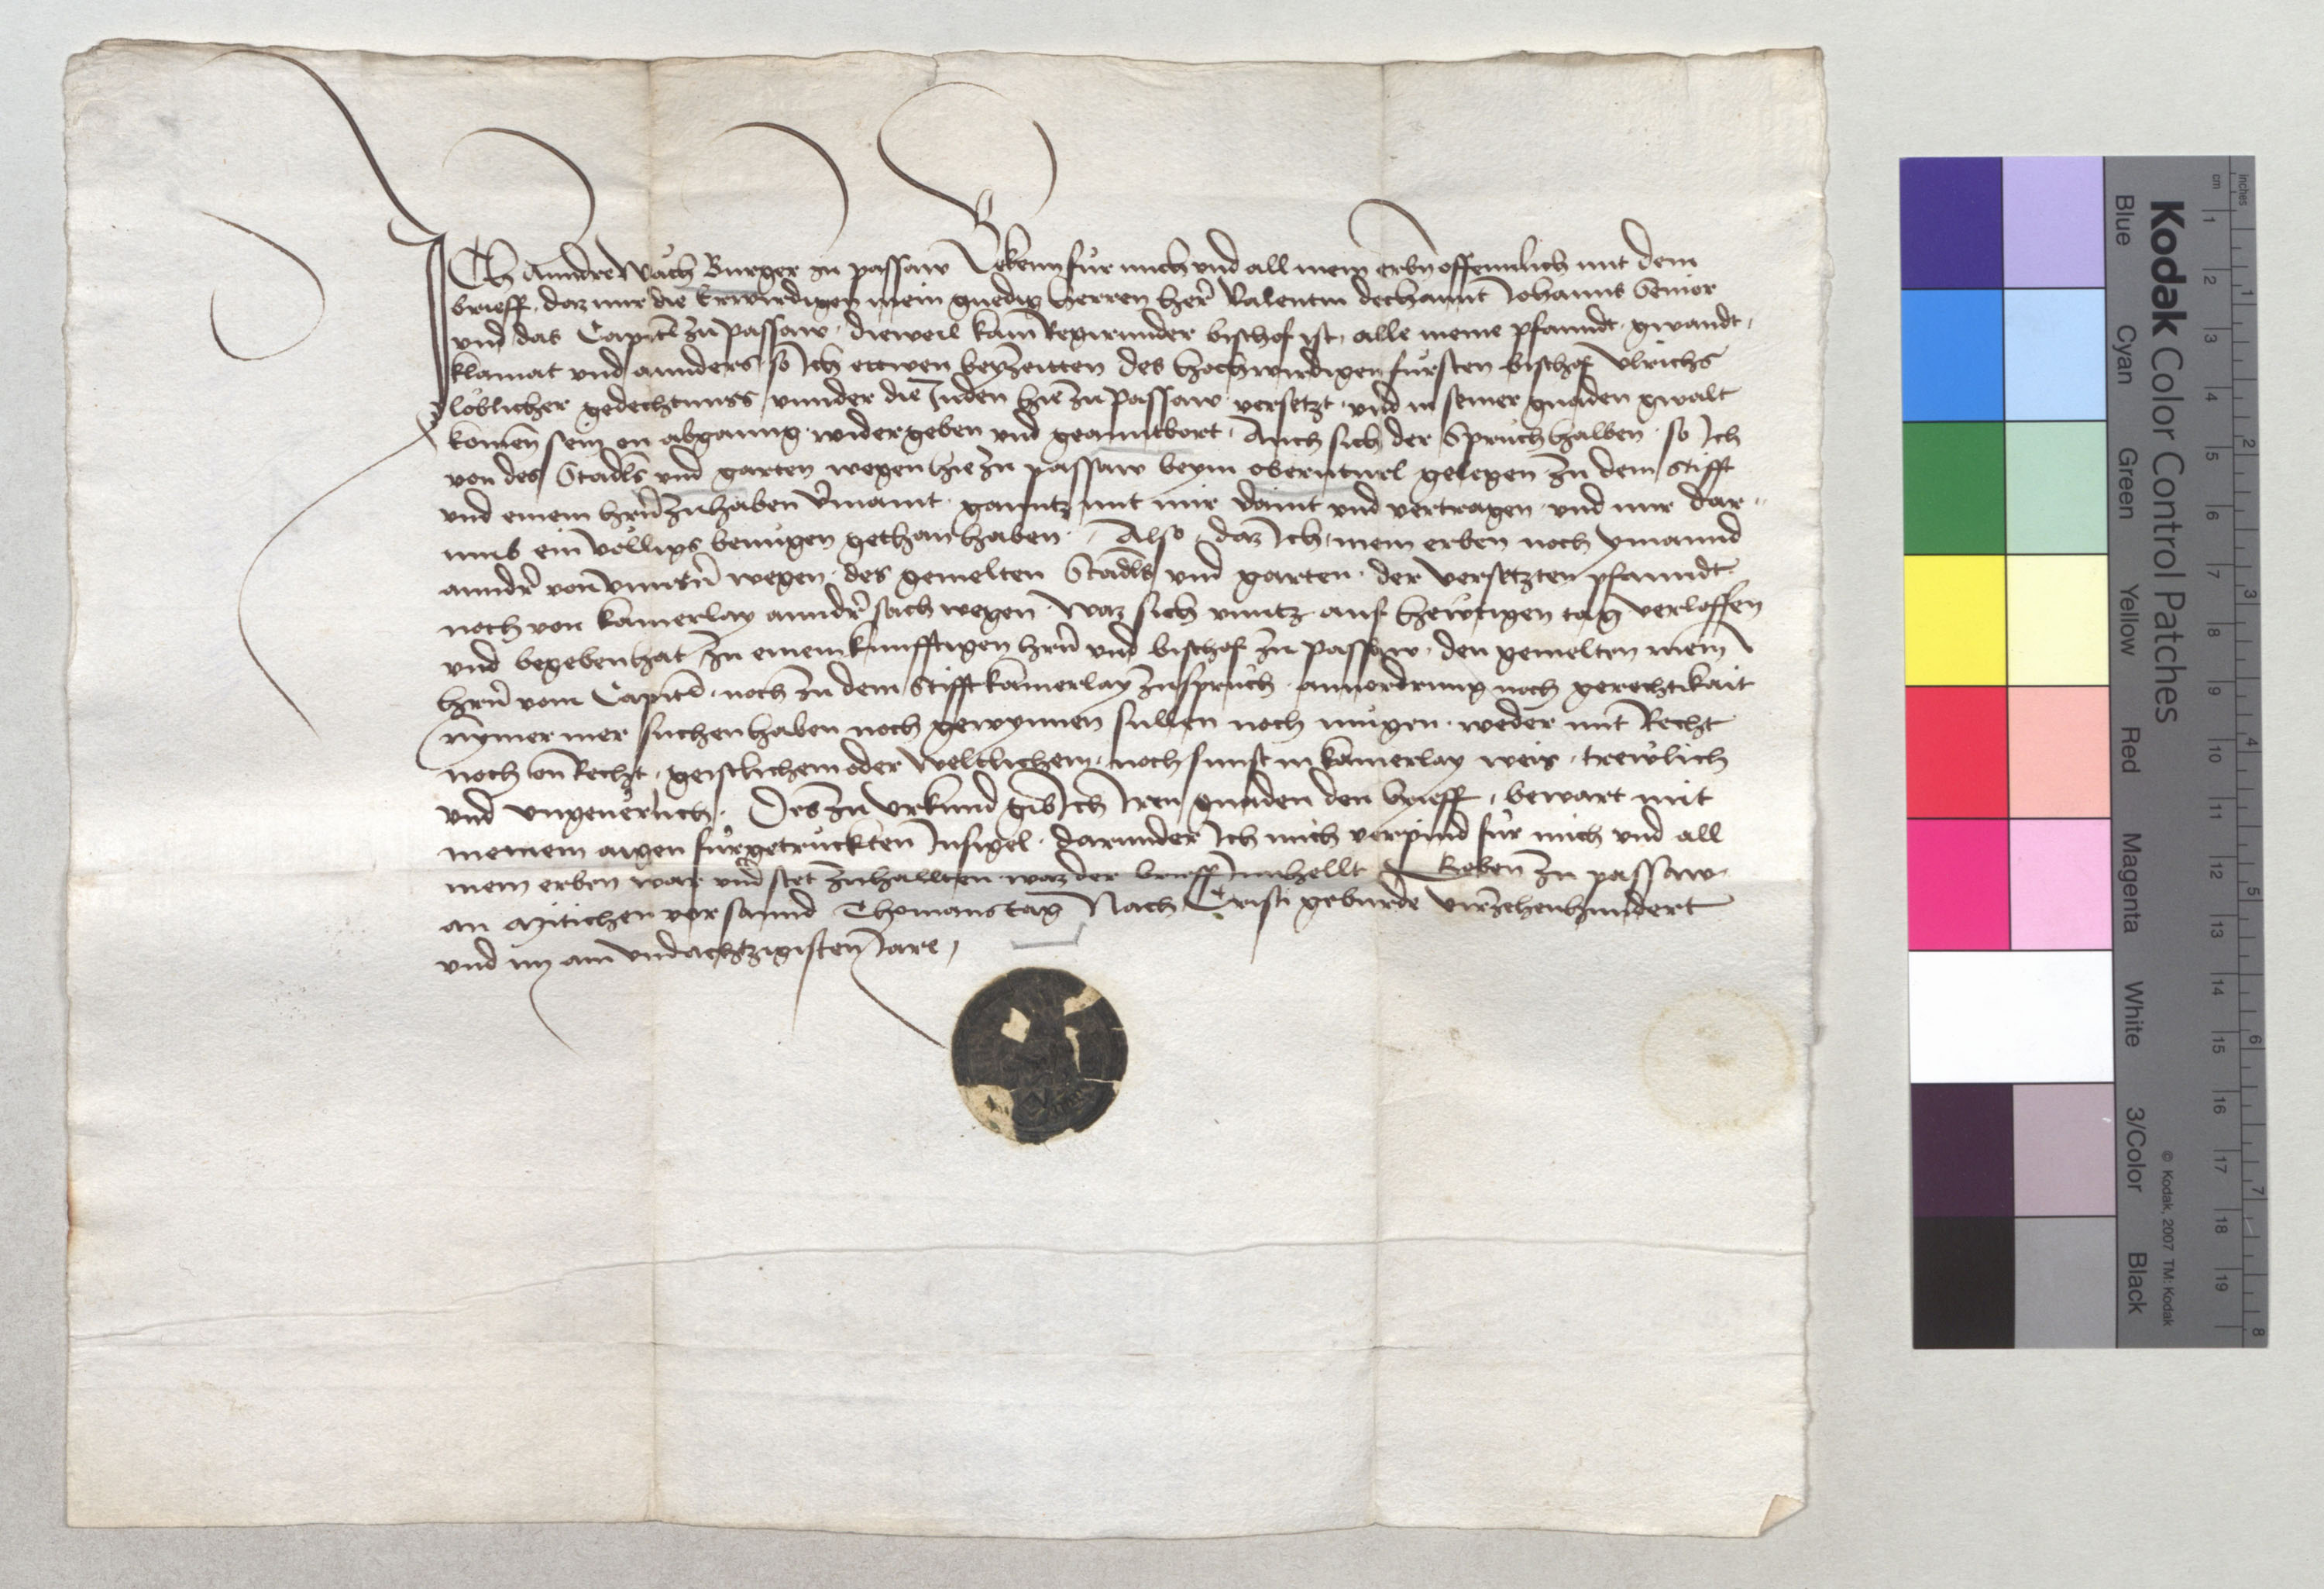 Ich Anndre Wach Burger zu passaw Bekenn für mich und all mein erbn offennlich mit dem
brieff, daz mir die Erwirdigen mein gnedig herren herr Valentin dechannt Johanns Senior
und das Capitl zu passaw, dieweil kain Regirunder bischof ist, alle meine pfanndt, gwandt,
klainat und annders, so Ich ettwen bey zeitten des hochwirdigen fursten bischof Ulrichs
loblicher gedechtnuss unnder die Juden hie zu passaw versetzt, und in seiner gnaden gwalt
komen sein on abganng widergeben und geanntbort, Auch sich der Spruch halben, so Ich
von des Stadls und garten wegen hie zu passaw beym oberntürl gelegen zu dem Stifft
und einem hrn zuhaben vermaint, ganntz mit mir vaint und vertragen, und mir dar
umb ein völligs benügen gethan haben, Also daz Ich, mein erben noch ymannd
anndr von unnsrn wegen, des gemelten Stadls und garten, der versetzten pfanndt
noch von kainerlay anndr sach wegen, waz sich unntz auf hewtigen tag verloffen
und begeben hat, zu einem kunfftigen hrn und bischof zu passaw, den gemelten mein
hrn vom Capitl, noch zu dem Stifft kainerlay zuspruch, anvordrung noch gerechtikait
nymer mer suchen haben noch gewynnen sullen noch mügen, weder mit Recht
noch on Recht, geistlichem oder weltlichem, noch sunst in kainerlay weis, trewlich
und ungeuerlich. Des zu urkund gib Ich Iren gnaden den brieff, bewart mit
meinem aigen fürgetruckten Insigel, darunder Ich mich verpind für mich und all
mein erben war und stet zuhallten waz der brieff innhellt Geben zu passaw
an Mitichen vor sannd Thomanstag Nach Cristi geburde virzehenhundert
und im ain undachtzigisten Jare,
Kodak Color Control Patches
Blue Cyan Green Yellow Red Magenta White 3/Color Black
© Kodak, 2007 TM: Kodak
inches 1 2 3 4 5 6 7 8
cm 1 2 3 4 5 6 7 8 9 10 11 12 13 14 15 16 17 18 19